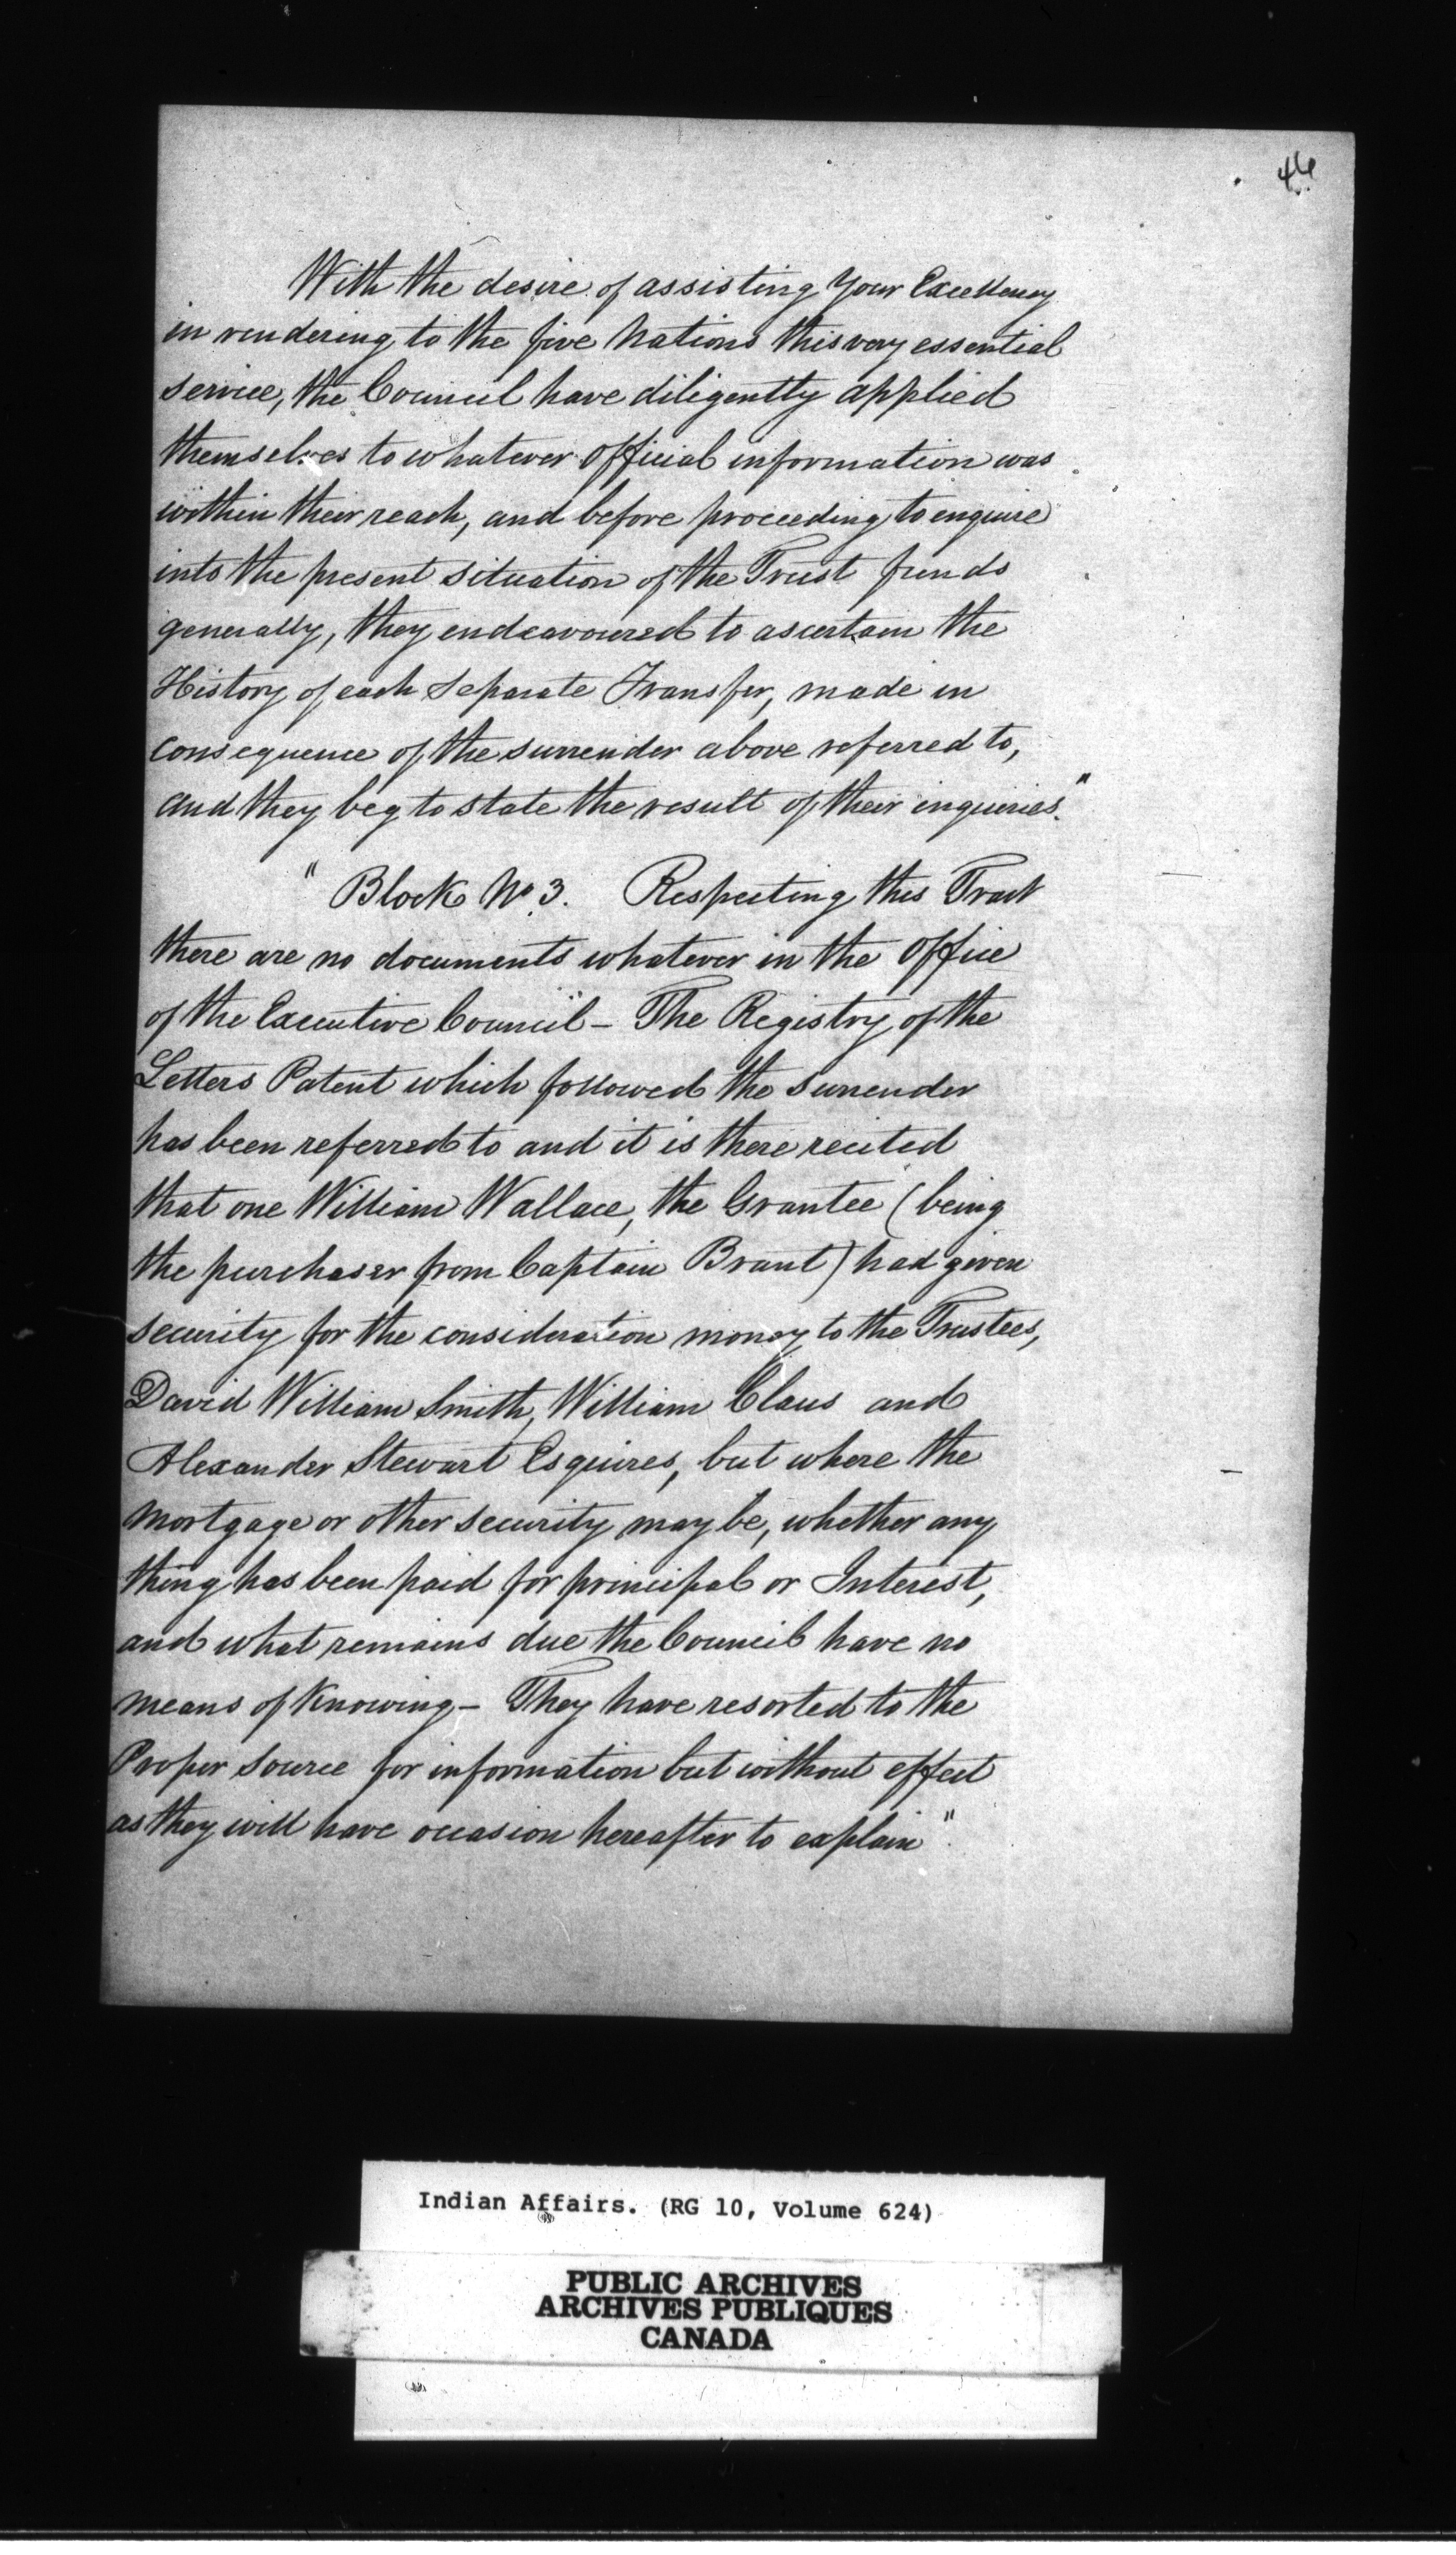 46
With the desire of assisting Your Excellency
in rendering to the five Nations this very essential
service, the Council have diligently applied
themselves to whatever official information was
within their reach, and before proceeding to enquire
into the present situation of the Trust funds
generally, they endeavoured to ascertain the
History of each Separate Transfer, made in
consequence of the surrender above referred to,
and they beg to state the result of their inquiries."
"Block No. 3. Respecting this Tract
there are no documents whatever in the Office
of the Executive Council – The Registry of the
Letters Patent which followed the surrender
has been referred to and it is there recited
that one William Wallace, the Grantee (being
the purchaser from Captain Brant) had given
security for the consideration money to the Trustees,
David William Smith, William Claus and
Alexander Stewart Esquires, but where the
Mortgage or other security may be, whether any
thing has been paid for principal or Interest,
and what remains due the Council have no
means of Knowing – They have resorted to the
Proper source for information but without effect
as they will have occasion hereafter to explain".
Indian Affairs. (RG 10, Volume 624)
PUBLIC ARCHIVES
ARCHIVES PUBLIQUES
CANADA